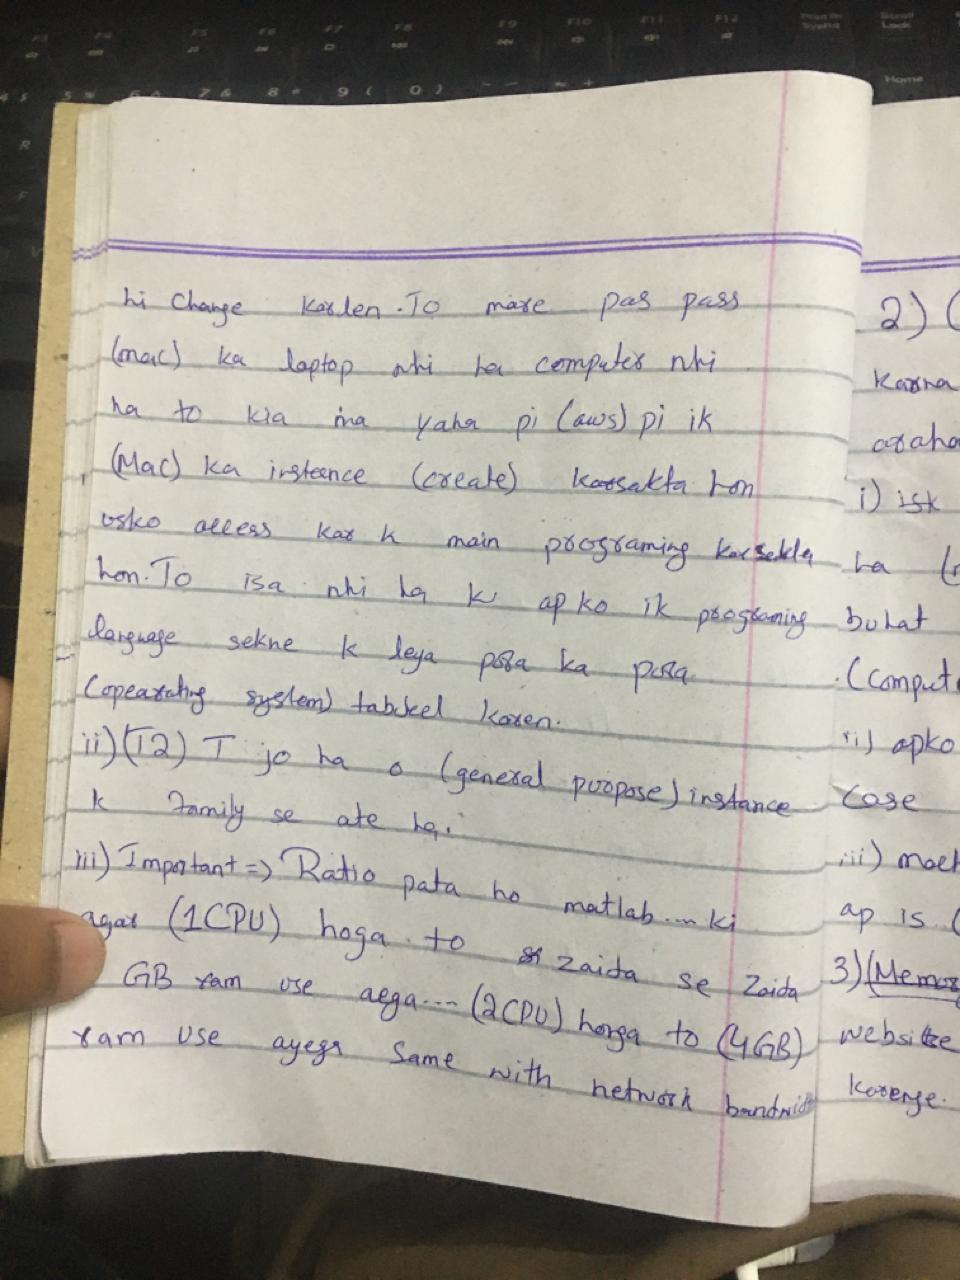 hi Change karlen. To mare pas pass
(mac) ka laptop nhi ha computer nhi
ha to kia ma yaha pi (aws) pi ik
(Mac) ka insteance (create) karsakta hon
usko access kar k main programing karsekta
hon. To isa nhi ha k apko ik programing
language sekne k leya pora ka pora
(opearating system) tabdeel karen.
ii) (T2) T jo ha o (general purpose) instance
k family se ate ha.
iii) Important => Ratio pata ho matlab... ki
agar (1CPU) hoga to zaida se zaida
GB ram use aega... (2CPU) horga to (4GB)
ram use ayega Same with network bandwid
2) (
karna
araha
i) isk
ha
buhat
(comput
ii) apko
case
iii)
ap is (
3) (Memo
website
karenge.
F5 F6 F7 F8 F9 F10 F11 F12
Scroll
Lock
Home
7 & 8 * 9 ( 0 )
R